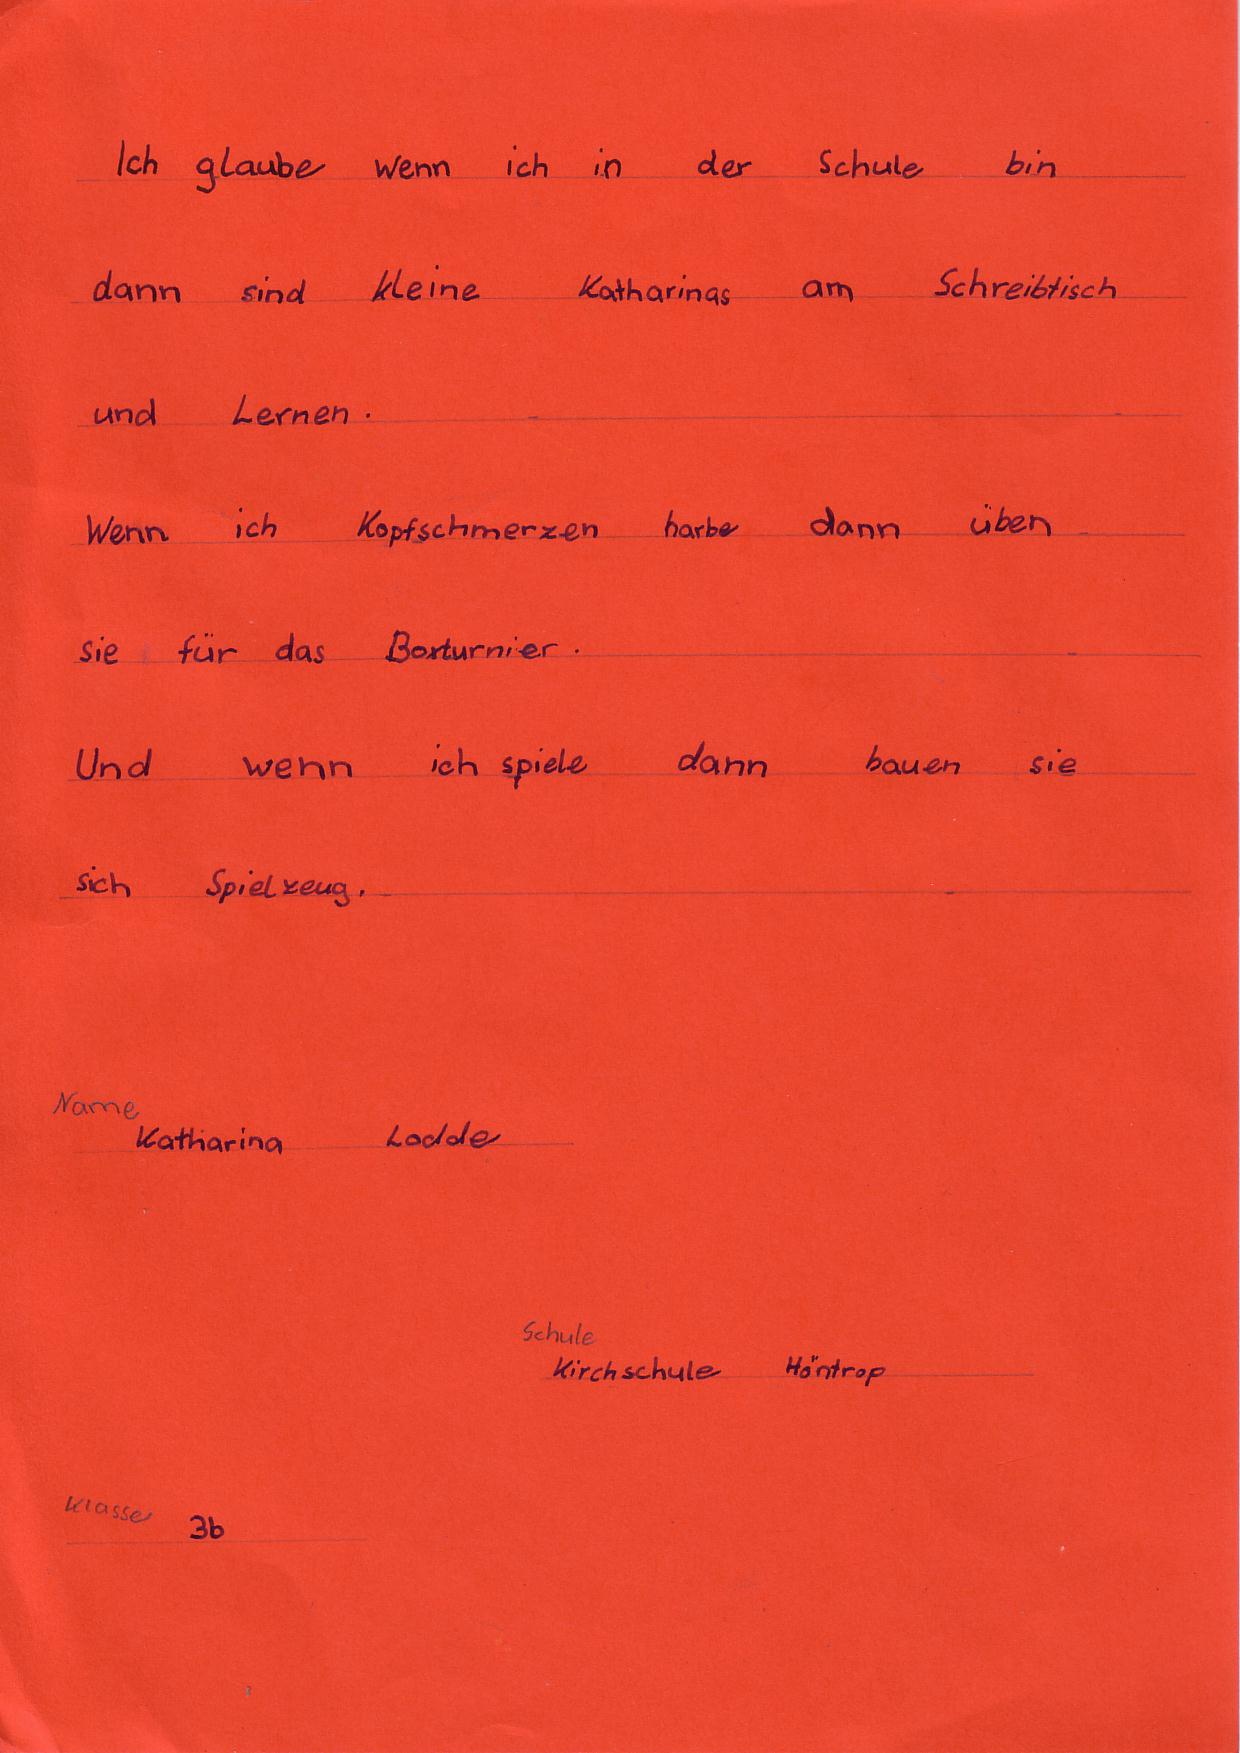 Ich glaube wenn ich in der Schule bin
dann sind kleine Katharinas am Schreibtisch
und Lernen.
Wenn ich Kopfschmerzen harbe dann üben
sie für das Boxturnier.
Und wenn ich spiele dann bauen sie
sich Spielzeug.
Name
Katharina Lodde
Schule
Kirchschule Höntrop
Klasse 3b